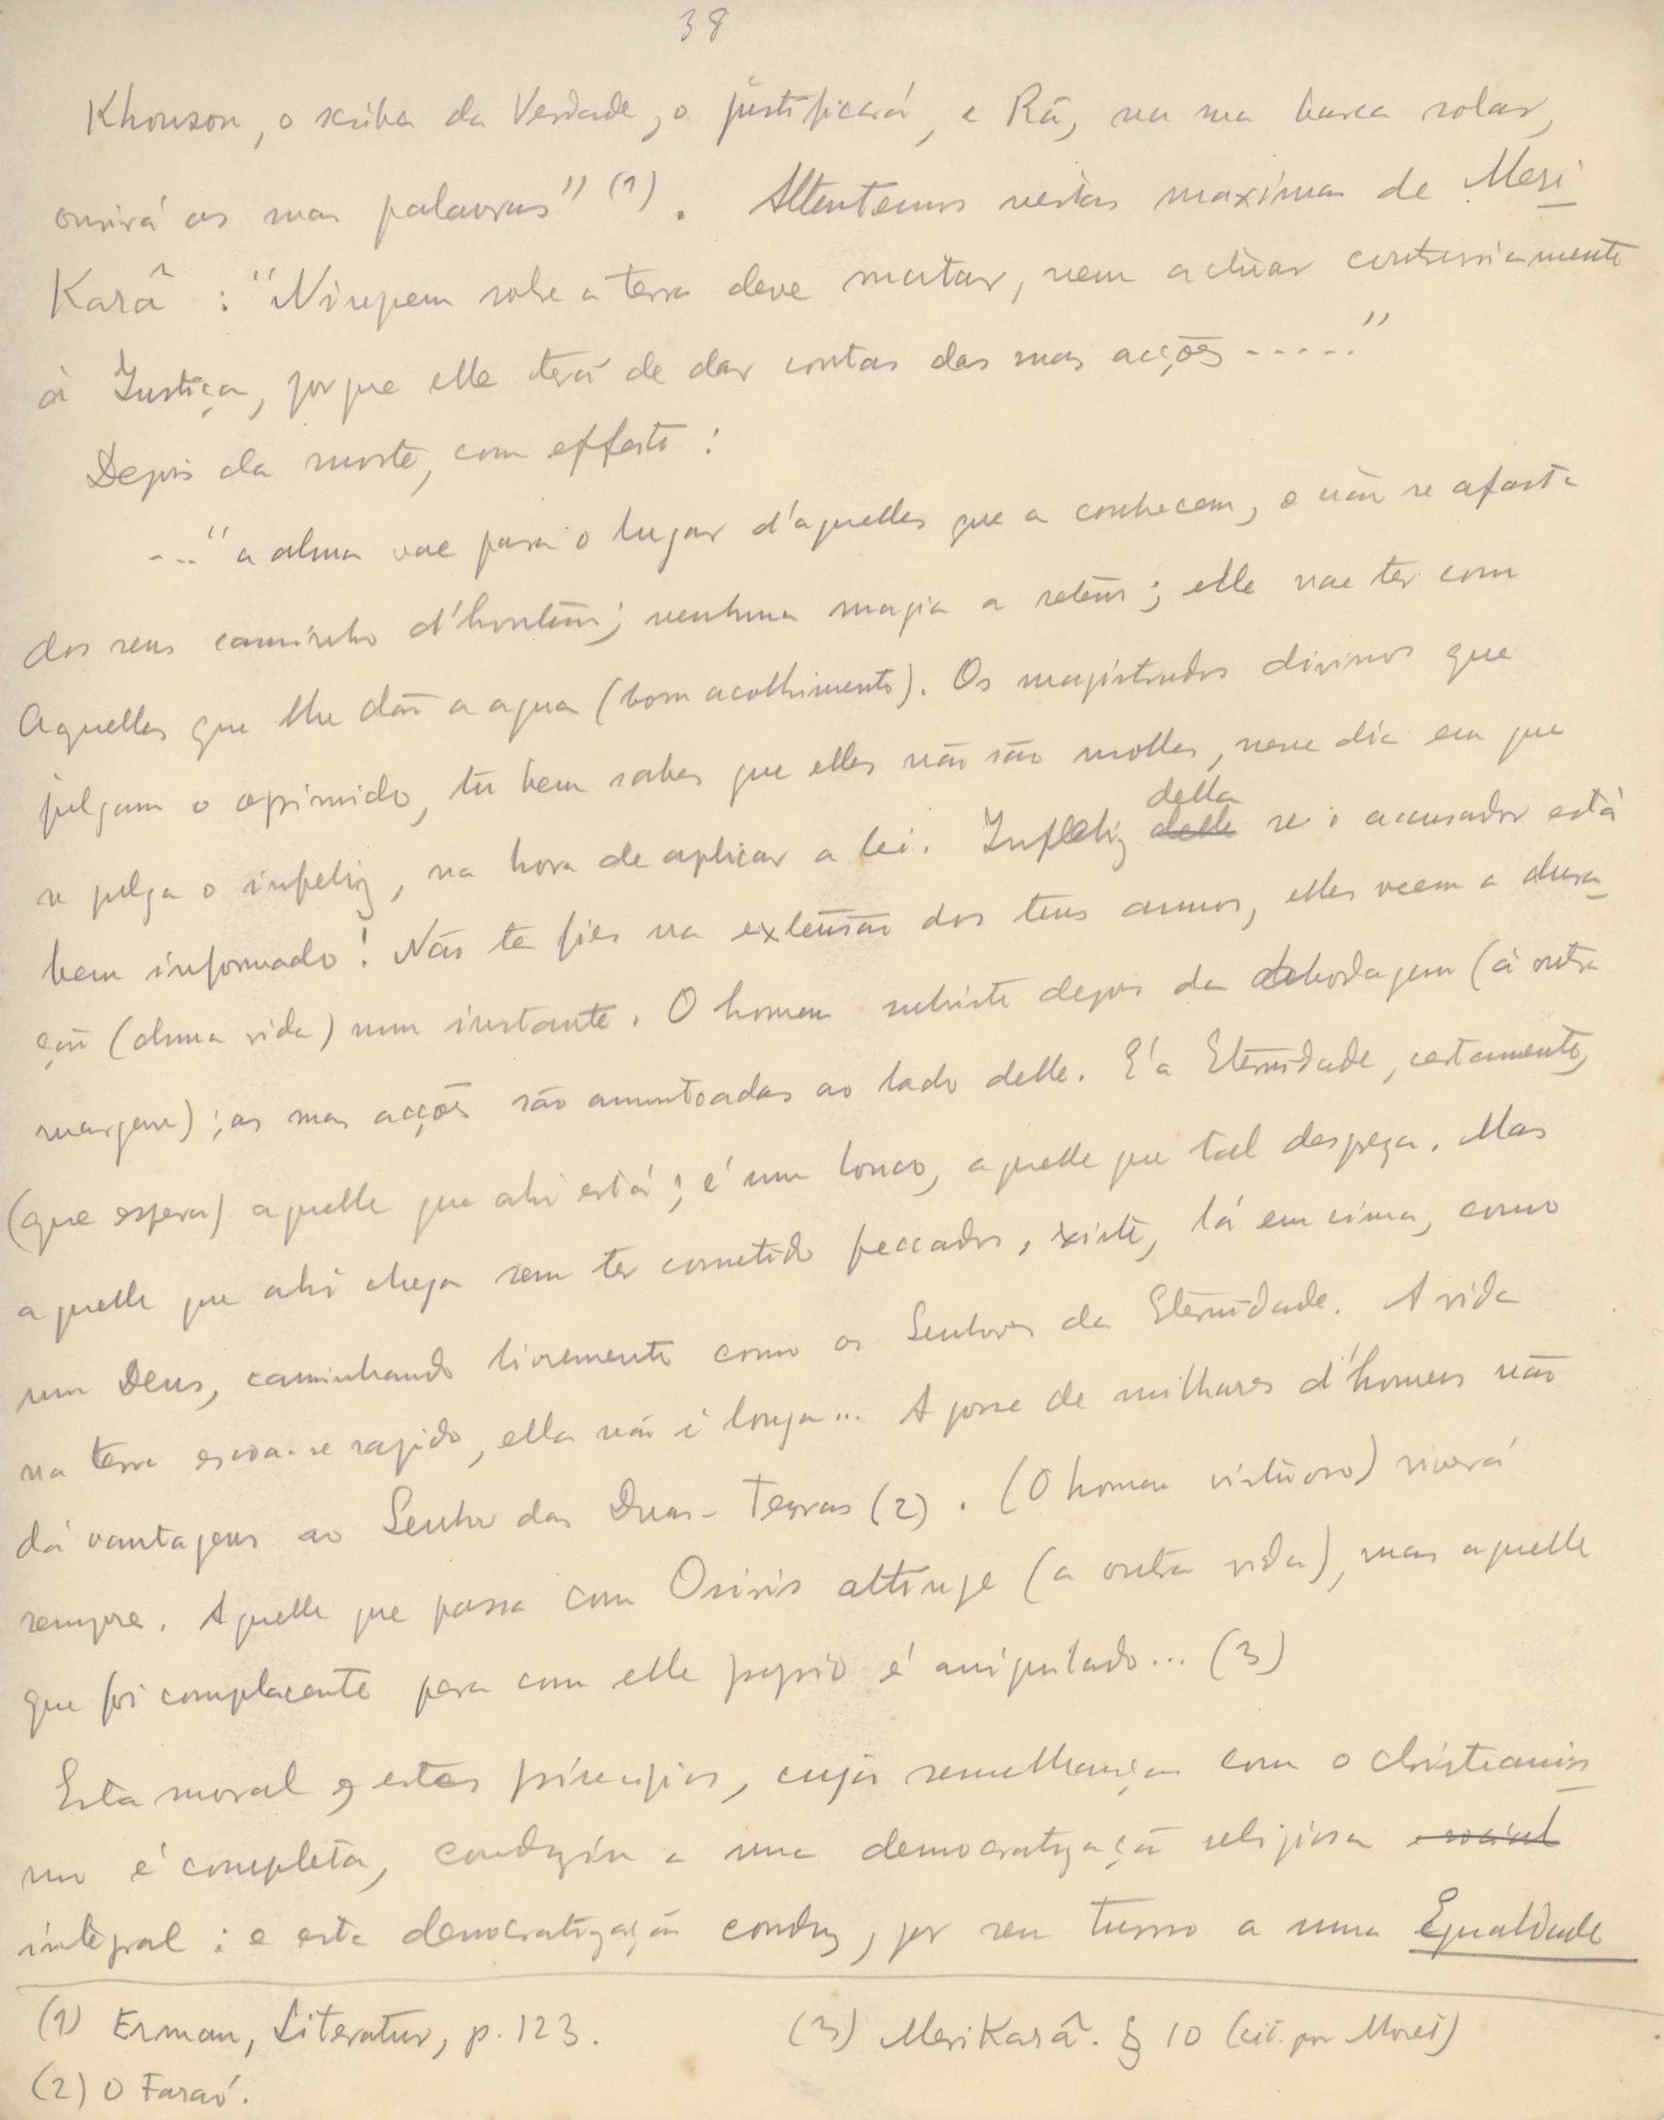 38
Khonson, o scriba da Verdade, o justificará, e Râ, na sua barca solar,
ouvirá as suas palavras" (1). Attentemos nestas maximas de Meri
Karâ : "Ninguem sobre a terra deve matar, nem actuar contrariamente
á Justiça, porque elle terá de dar contas das suas acções ....."
Depois da morte, com effeito :
..." a alma vae para o lugar d'aquelles que a conhecem, e não se afasta
dos seus caminho d'hontem; nenhuma magia a retem; elle vae ter com
Aquelles que lhe dão a agua (bom acolhimento). Os magistrados divinos que
julgam o oprimido, tu bem sabes que elles não são molles, nesse dia em que
se julga o infeliz, na hora de aplicar a lei. Infeliz delle della se o accusador está
bem informado! Não te fies na extensão dos teus annos, elles veem a dura
ção (duma vida) num instante. O homem subsiste depois da abordagem (á outra
margem) ; as suas acções são amontoadas ao lado delle. É a Eternidade, certamente,
(que espera) aquelle que ahi está; é um louco, aquelle que tal despreza. Mas
aquelle que ahi chega sem ter cometido peccados, existe, lá em cima, como
um Deus, caminhando livremente como os Senhores da Eternidade. A vida
na terra escoa-se rapido, ella não é longa... A posse de milhares d'homens não
dá vantagens ao Senhor das Duas-Terras (2). (O homem virtuoso) viverá
sempre. Aquelle que passa com Osiris attinge (a outra vida), mas aquelle
que foi complacente para com elle proprio é aniquilado... (3)
Esta moral e estes principios, cuja semelhança com o christianis
mo é completa, conduziu a uma democratização religiosa e social
integral : e esta democratização conduz, por seu turno a uma Egualdade
(1) Erman, Literatur, p. 123.
(2) O Faraó.
(3) MeriKarâ. § 10 (cit. por Moret)